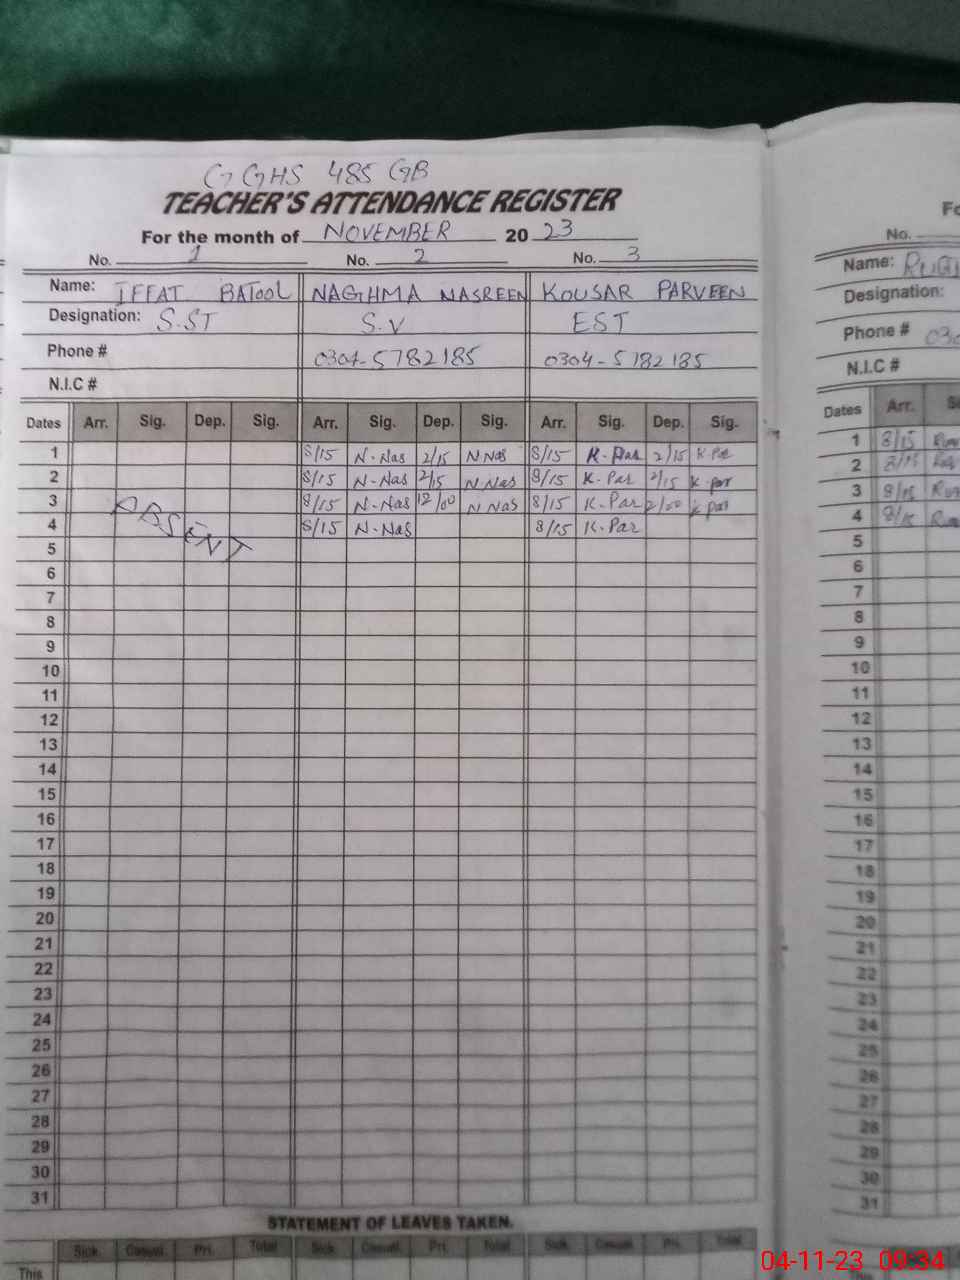 GGHS 485 GB
TEACHER'S ATTENDANCE REGISTER
For the month of NOVEMBER 2023
No. 1 No. 2 No. 3
Name: IFFAT BATOOL NAGHMA NASREEN KOUSAR PARVEEN
Designation: S.ST S.V EST
Phone # 0304-5782185 0304-5782185
N.I.C #
Dates Arr. Sig. Dep. Sig. Arr. Sig. Dep. Sig. Arr. Sig. Dep. Sig.
1 8/15 N-Nas 2/15 N Nas 8/15 K-Par 2/15 K-Par
2 8/15 N-Nas 2/15 N Nas 8/15 K-Par 2/15 K-par
3 8/15 N-Nas 12/00 N Nas 8/15 K-Par 2/00 K par
4 8/15 N-Nas 8/15 K-Par
ABSENT
5
6
7
8
9
10
11
12
13
14
15
16
17
18
19
20
21
22
23
24
25
26
27
28
29
30
31
STATEMENT OF LEAVES TAKEN.
Sick. Casual. Pri. Total Sick. Casual. Pri. Total Sick. Casual. Pri. Total
This
No.
Name:
Designation:
Phone #
N.I.C #
Dates Arr.
1 8/15
2 8/15
3 8/15
4 8/15
5
6
7
8
9
10
11
12
13
14
15
16
17
18
19
20
21
22
23
24
25
26
27
28
29
30
31
This
04-11-23 09:34